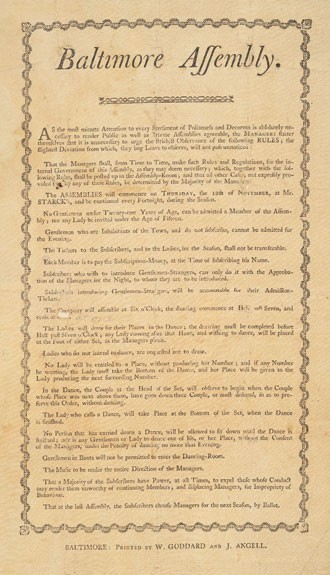 Baltimore Aſſembly.
AS the most minute Attention to every Sentiment of Politeness and Decorum is absolutely ne-
cessary to render Public as well as Private Assemblies agreeable, the MANAGERS flatter
themselves that it is unnecessary to urge the strictest Observance of the following RULES; the
slightest Deviation from which, they beg Leave to observe, will not pass unnoticed:
That the Managers shall, from Time to Time, make such Rules and Regulations, for the in-
ternal Government of this Assembly, as they may deem necessary; which, together with the fol-
lowing Rules, shall be posted up in the Assembly-Room; and that all other Cases, not expressly pro-
vided for by any of these Rules, be determined by the Majority of the Managers.
The ASSEMBLIES will commence on THURSDAY, the 12th of NOVEMBER, at Mr.
STARCK's, and be continued every Fortnight, during the Season.
No Gentleman under Twenty-one Years of Age, can be admitted a Member of the Assem-
bly; nor any Lady be invited under the Age of Fifteen.
Gentlemen who are Inhabitants of the Town, and do not subscribe, cannot be admitted for
the Evening.
The Tickets to the Subscribers, and to the Ladies, for the Season, shall not be transferable.
Each Member is to pay the Subscription-Money, at the Time of subscribing his Name.
Subscribers who wish to introduce Gentlemen-Strangers, can only do it with the Approba-
tion of the Managers for the Night, to whom they are to be introduced.
Subscribers introducing Gentlemen-Strangers, will be accountable for their Admission-
Tickets.
The Company will assemble at Six o'Clock, the drawing commence at Half past Seven, and
The Ladies will draw for their Places in the Dance; the drawing must be completed before
Half past Seven o'Clock; any Lady coming after that Hour, and wishing to dance, will be placed
at the Foot of either Set, as the Managers please.
Ladies who do not intend to dance, are requested not to draw.
No Lady will be entitled to a Place, without producing her Number; and if any Number
be wanting, the Lady must take the Bottom of the Dance, and her Place will be given to the
Lady producing the next succeeding Number.
In the Dance, the Couple at the Head of the Set, will observe to begin when the Couple
whose Place was next above them, have gone down three Couple, or must desist, so as to pre-
serve this Order, without dancing.
The Lady who calls a Dance, will take Place at the Bottom of the Set, when the Dance
is finished.
No Person that has carried down a Dance, will be allowed to sit down until the Dance is
finished; nor is any Gentleman or Lady to dance out of his, or her Place, without the Consent
of the Managers, under the Penalty of dancing no more that Evening.
Gentlemen in Boots will not be permitted to enter the Dancing-Room.
The Music to be under the entire Direction of the Managers.
That a Majority of the Subscribers have Power, at all Times, to expel those whose Conduct
may render them unworthy of continuing Members; and displacing Managers, for Impropriety of
Behaviour.
That at the last Assembly, the Subscribers choose Managers for the next Season, by Ballot.
BALTIMORE: PRINTED BY W. GODDARD AND J. ANGELL.